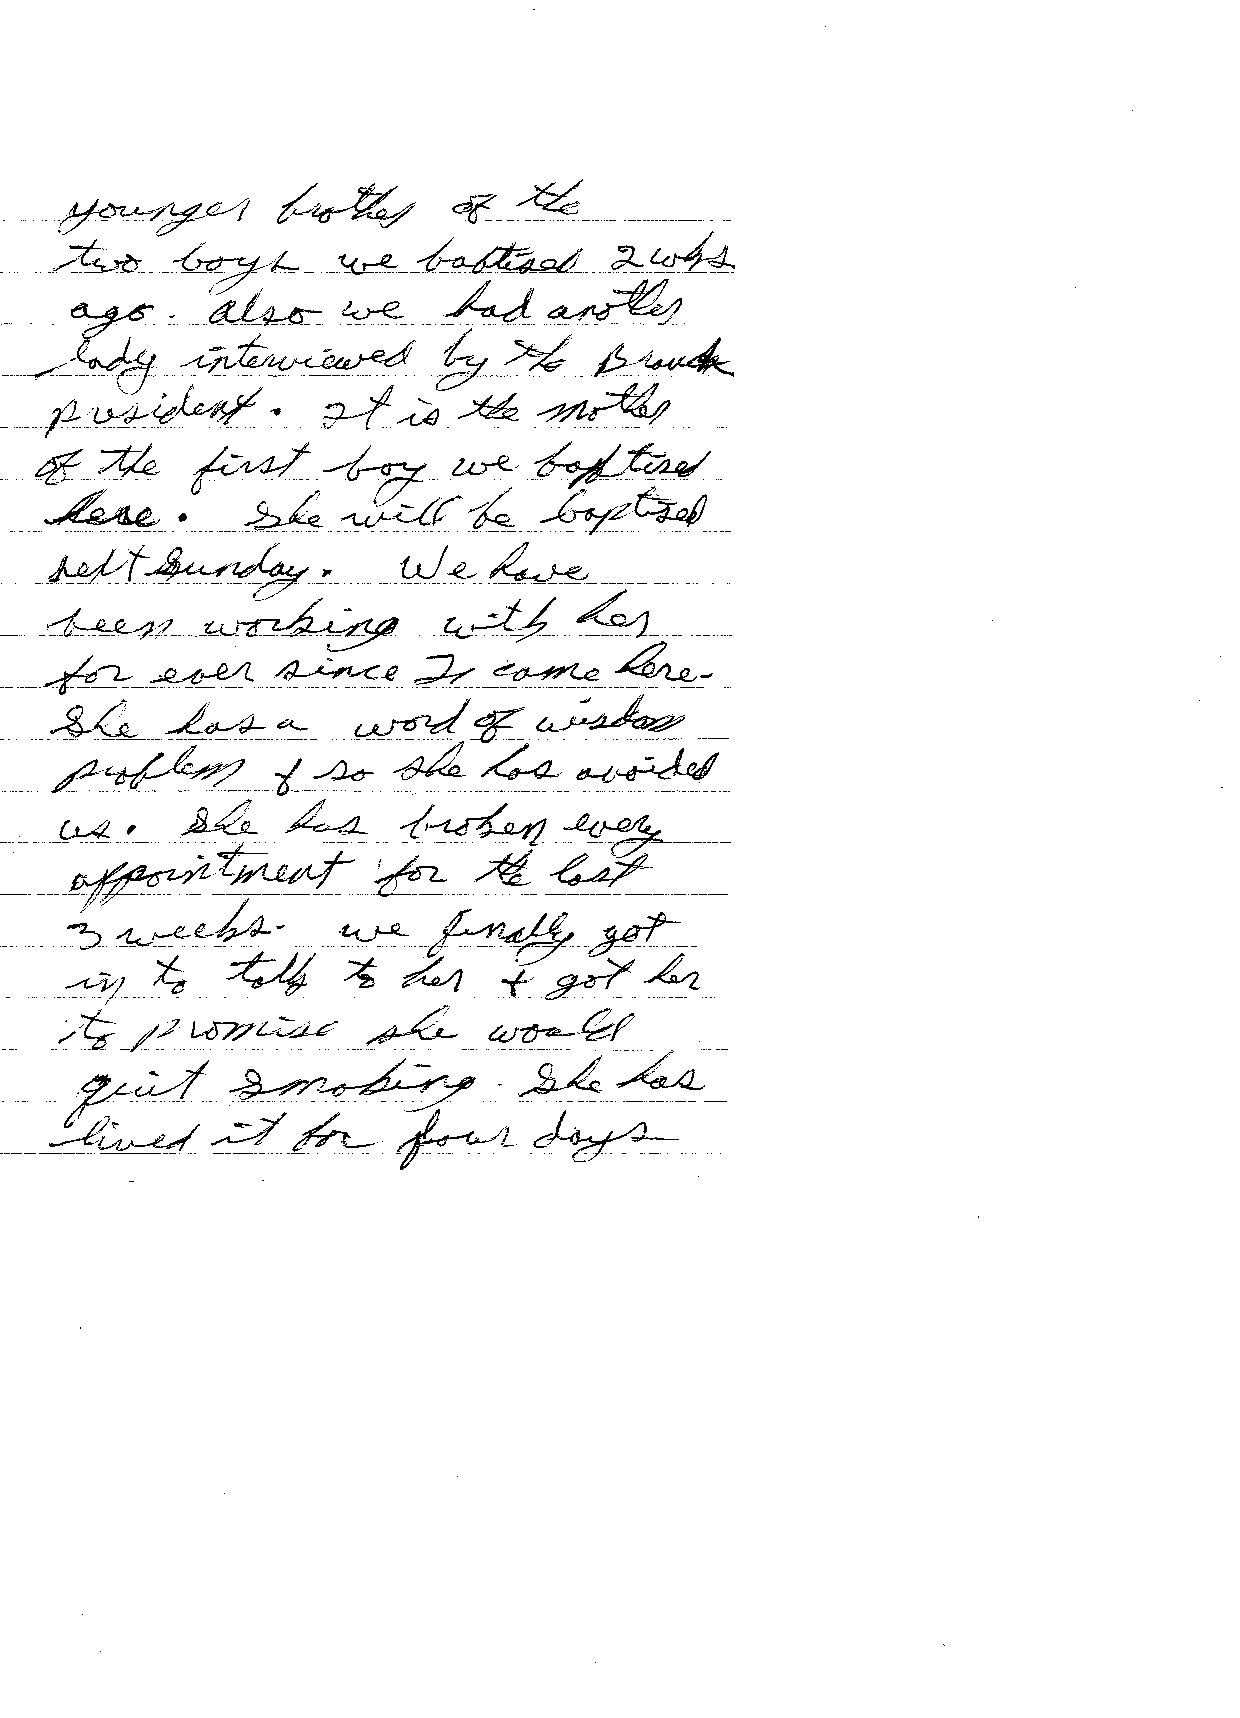 younger brother of the
two boys we baptised 2 wks
ago. Also we had another
lady interviewed by the Branch
president. It is the mother
of the first boy we baptised
here. She will be baptised
next Sunday. We have
been working with her
for ever since I came here.
She has a word of wisdom
problem & so she has avoided
us. She has broken every
appointment for the last
3 weeks. we finally got
in to talk to her & got her
to promise she would
quit smoking. She has
lived it for four days